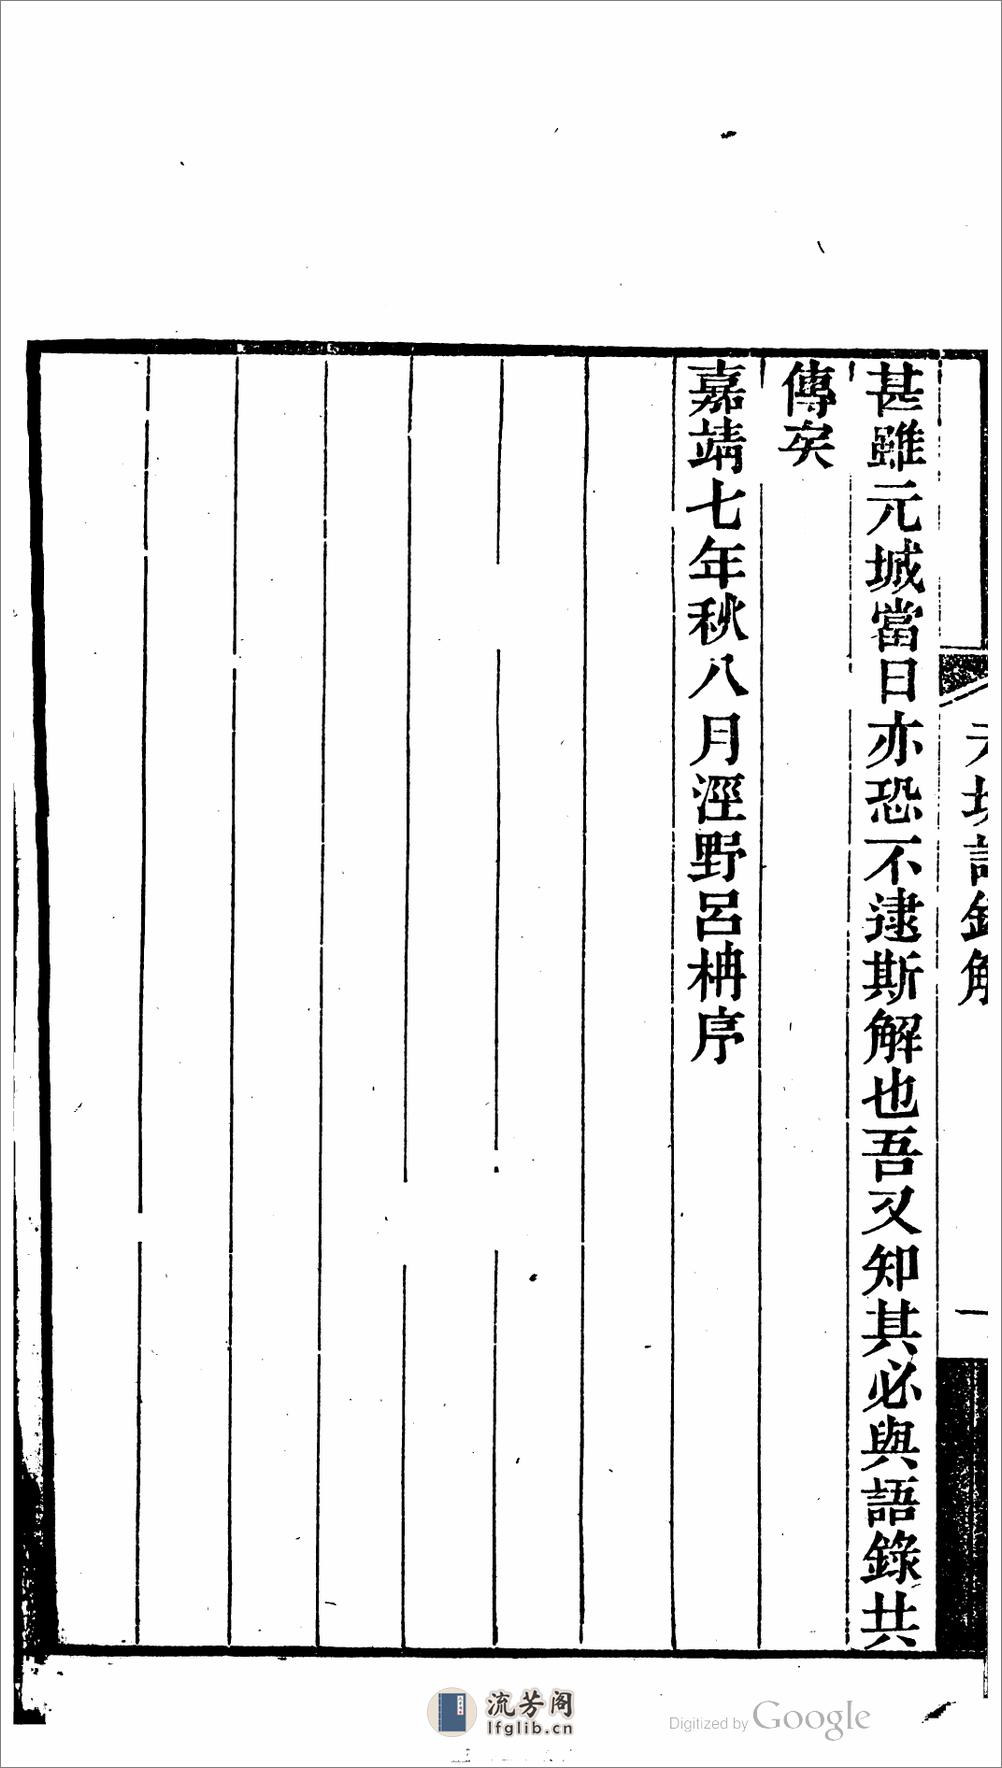 甚雖元城當日亦恐不逮斯解也吾又知其必與語錄共
傳矣
嘉靖七年秋八月涇野呂柟序
元城語錄解
一
流芳阁
lfglib.cn
Digitized by Google